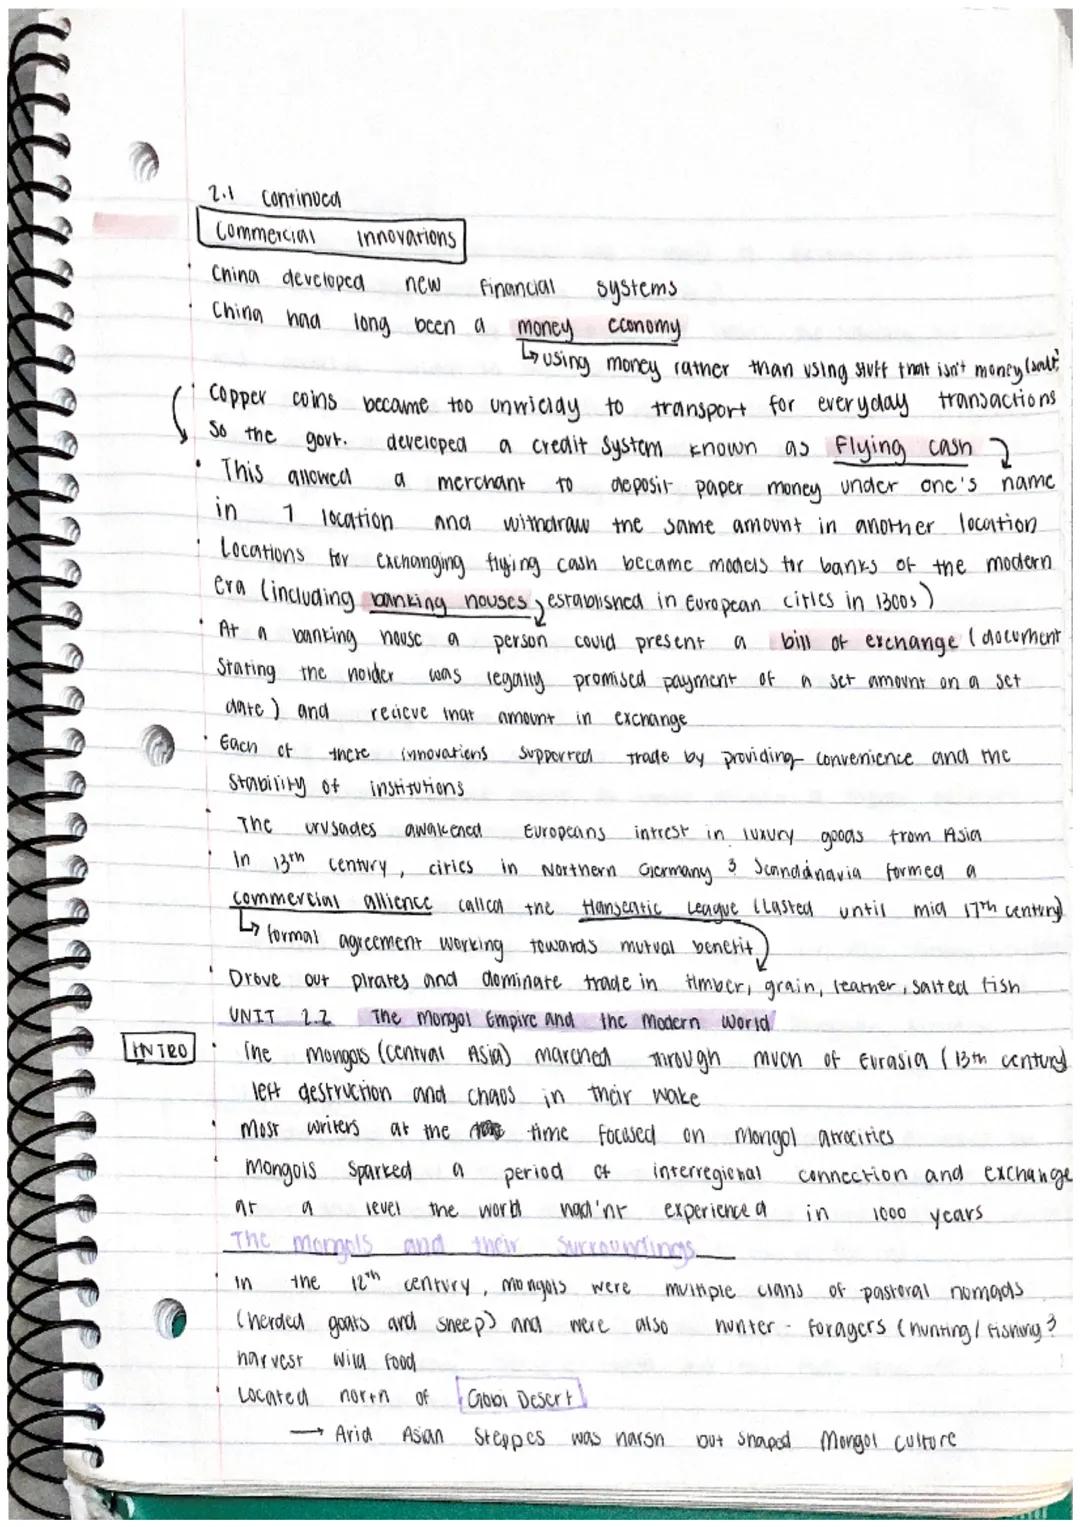 2.1 Continued
Commercial Innovations
China developed new financial systems
China had long been a money economy
↳ using money rather than using stuff that isn't money (salt)
Copper coins became too unwieldy to transport for everyday transactions
So the govt. developed a credit system known as Flying cash
This allowed a merchant to deposit paper money under one's name
in 1 location and withdraw the same amount in another location
Locations for exchanging flying cash became models for banks of the modern
era (including banking houses, established in European cities in 1300s)
At a banking house a person could present a bill of exchange (document
stating the holder was legally promised payment of a set amount on a set
date) and recieve that amount in exchange
Each of there innovations supported trade by providing convenience and the
stability of institutions
The crusades awakened Europeans intrest in luxury goods from Asia
In 13th century, cities in Northern Germany & Scandanavia formed a
commercial allience called the Hanseatic League (Lasted until mid 17th century)
↳ formal agreement working towards mutual benefit
Drove out pirates and dominate trade in timber, grain, leather, salted fish
UNIT 2.2 The Mongol Empire and the Modern World
INTRO
The mongols (central Asia) marched through much of Eurasia (13th century)
left destruction and chaos in their wake
Most writers at the time focused on Mongol atrocities
Mongols sparked a period of interregional connection and exchange
at a level the world had'nt experienced in 1000 years
The mongols and their surroundings
In the 12th century, mongols were multiple clans of pastoral nomads
(herded goats and sheep) and were also hunter - foragers (hunting/fishing &
harvest wild food
Located north of Gobi Desert
→ Arid Asian Steppes was harsh but shaped Mongol culture